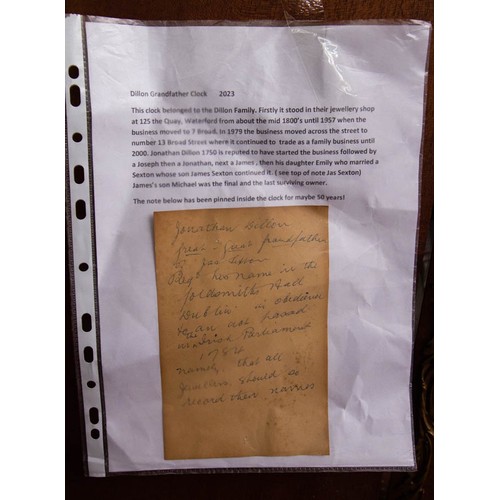 Dillon Grandfather Clock 2023
This clock belonged to the Dillon Family. Firstly it stood in their jewellery shop
at 125 the Quay, Waterford from about the mid 1800's until 1957 when the
business moved to 7 Broad. In 1979 the business moved across the street to
number 13 Broad Street where it continued to trade as a family business until
2000. Jonathan Dillon 1750 is reputed to have started the business followed by
a Joseph then a Jonathan, next a James , then his daughter Emily who married a
Sexton whose son James Sexton continued it. ( see top of note Jas Sexton)
James's son Michael was the final and the last surviving owner.
The note below has been pinned inside the clock for maybe 50 years!
Jonathan Dillon
great - great grandfather
of Jas Sexon
Regd his name in the
Goldsmiths Hall
Dublin in obedience
to an act
Irish Parliament
1784
namely, that all
Jewellers should so
record their names